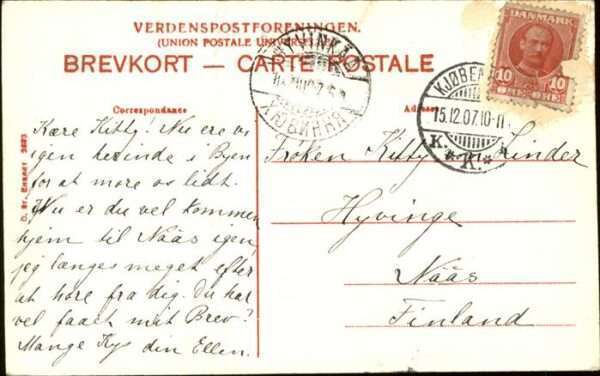 VERDENSPOSTFORENINGEN.
(UNION POSTALE UNIVERSELLE)
BREVKORT — CARTE POSTALE
Correspondance
Adresse
DANMARK
10 10
ØRE
KJØBENH
15.12.07.10-11
K. K.
HYVINKÄÄ
Kære Kitty! Nu ere vi
igen herinde i Byen
for at more os lidt.
Nu er du vel kommen
hjem til Nääs igen,
jeg længes meget efter
at høre fra dig. Du har
vel faaet mit Brev?
Mange Kys din Ellen.
Frøken Kitty Linder
Hyvinge
Nääs
Finland